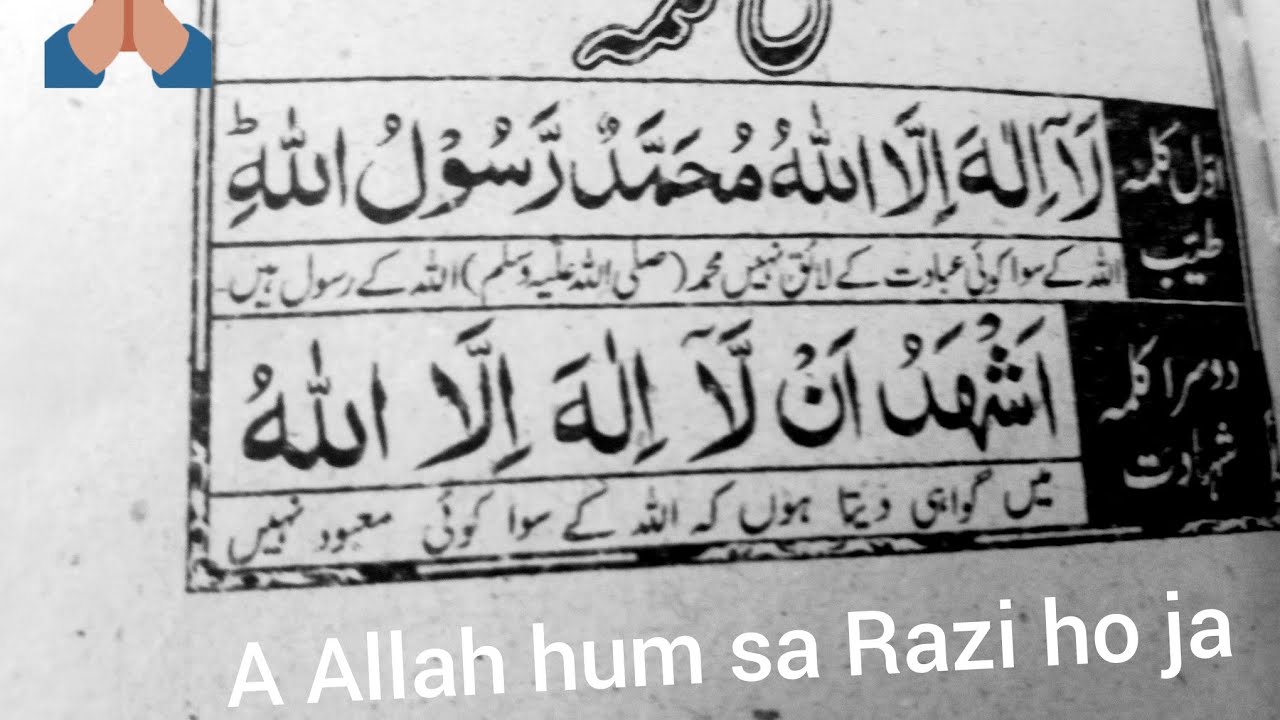 لَآ اِلٰهَ اِلَّا اللّٰهُ مُحَمَّدٌ رَّسُوْلُ اللّٰهِؕ
اوّل کلمہ
طیّب
اللہ کے سوا کوئی عبادت کے لائق نہیں محمد (صلی اللہ علیہ وسلم) اللہ کے رسول ہیں۔
اَشْهَدُ اَنْ لَّآ اِلٰهَ اِلَّا اللّٰهُ
دوسرا کلمہ
شہادت
میں گواہی دیتا ہوں کہ اللہ کے سوا کوئی معبود نہیں
A Allah hum sa Razi ho ja